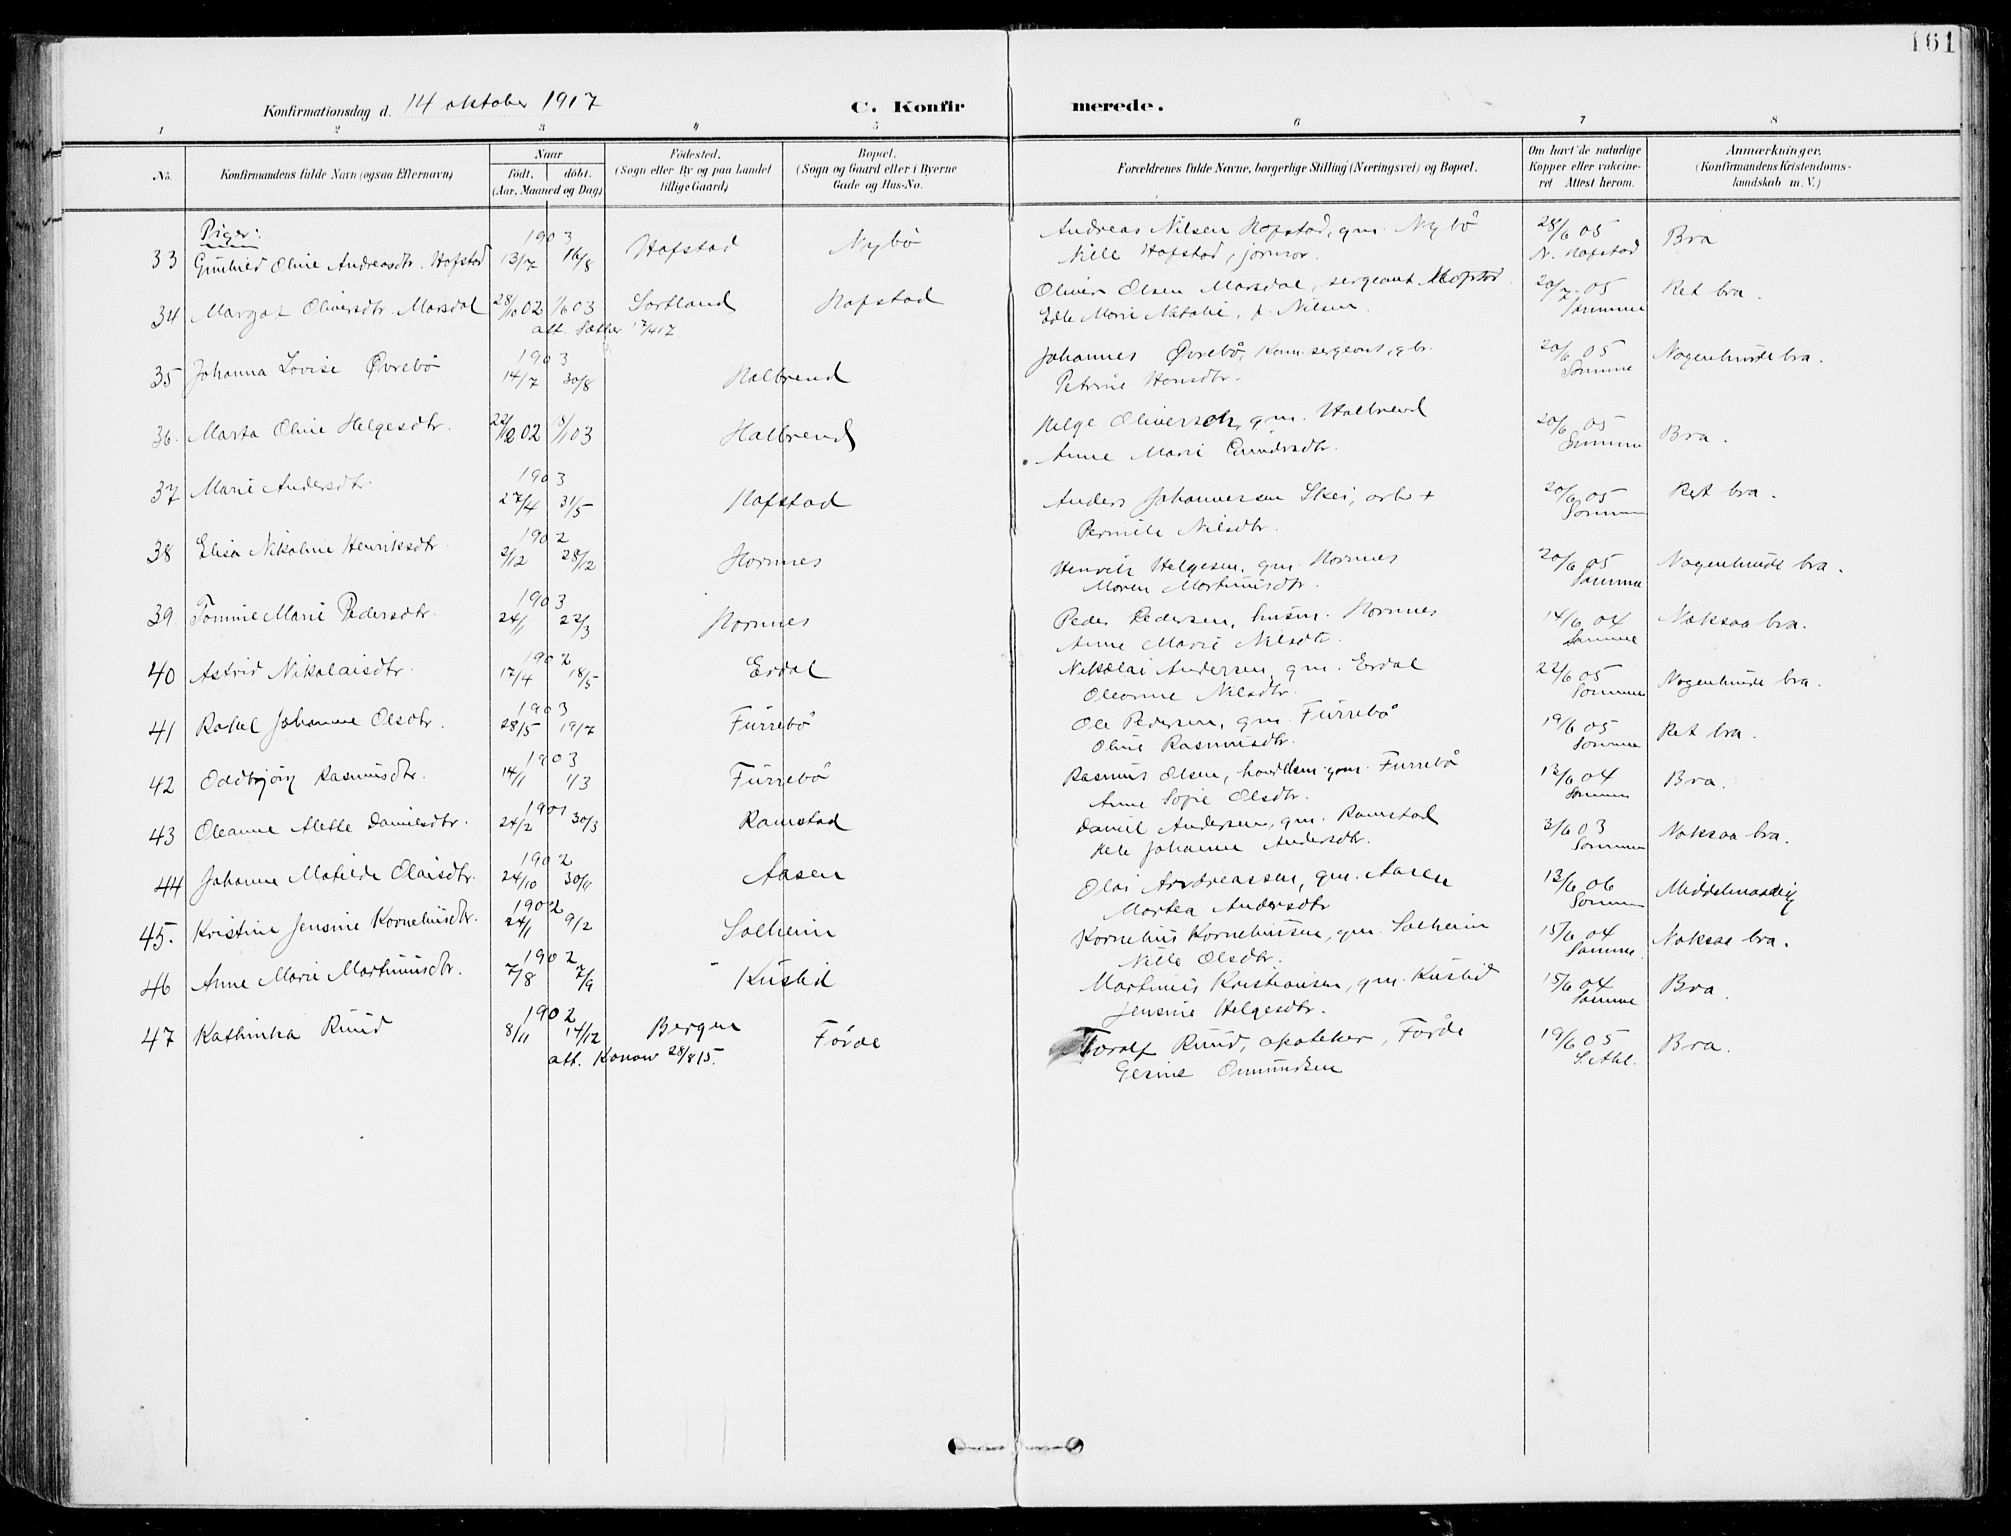 161
Konfirmationsdag d. 14 oktober 1917
C. Konfirmerede.
1 2 3 4 5 6 7 8
No. Konfirmandens fulde Navn (ogsaa Efternavn)
Naar Födt. döbt. (Aar, Maaned og Dag)
Födested. (Sogn eller By og paa Landet tillige Gaard)
Bopæl. (Sogn og Gaard eller i Byerne Gade og Hus-No.
Forældrenes fulde Navne, borgerlige Stilling (Næringsvei) og Bopæl.
Om havt de naturlige Kopper eller vakcineret. Attest herom.
Anmærkninger. (Konfirmandens Kristendomskundskab m. V.)
Piger: 1903 Andreas Nilsen Hofstad, gm. Nybö 28/6 05
33 Gunhild Oline Andreasdtr. Hafstad 13/7 16/8 Hafstad Nybö Nille Hafstad, jormor. N. Hafstad Bra
34 Margot Oliversdtr. Marsdal 28/10 02 1/6 03 Sortland Hafstad Oliver Olsen Marsdal, sergeant Hafstad 20/7 05 Ret bra.
att. Sæther 17/4 17. Edle Marie Natalie, f. Nilsen. Samme
1903
35 Johanna Lovise Øvrebö 14/7 30/8 Halbrend Johannes Øvrebö, Kom.sergeant, gbr. 20/6 05 Nogenlunde bra.
Petrine Hansdtr. Samme
36. Marta Oline Helgesdtr. 22/12 02 18/1 03 Halbrend Helge Oliversen, gm. Halbrend 20/6 05 Bra.
Anne Marie Gundersdtr. Samme
1903
37 Marie Andersdtr. 27/4 31/5 Hafstad Anders Johannessen Skei, arb + 20/6 05 Ret bra.
Pernille Nilsdtr. Samme
1902
38 Elisa Nikoline Henriksdtr. 2/12 28/12 Hornnes Henrik Helgesen, gm. Hornnes 20/6 05 Nogenlunde bra.
Maren Martinusdtr. Samme
1903
39. Tomine Marie Pedersdtr. 24/1 22/3 Hornnes Peder Pedersen, husm. Hornnes 14/6 04 Noksaa bra.
Anne Marie Nilsdtr. Samme
1902
40 Astrid Nikolaisdtr. 17/4 18/5 Erdal Nikolai Andersen, gm. Erdal 22/6 05 Nogenlunde bra.
Oleanne Nilsdtr. Samme
1903
41 Rakel Johanne Olsdtr. 28/5 19/7 Furrebö Ole Pedersen, gm. Furrebö 19/6 05 Ret bra.
Oline Rasmusdtr. Samme
1903
42 Oddbjörg Rasmusdtr. 14/1 1/3 Furrebö Rasmus Olsen, handelsm. gm. Furrebö 13/6 04 Bra.
Anne Sofie Olsdtr. Samme
1901
43 Oleanne Alette Danielsdtr. 24/2 30/3 Ramstad Daniel Andersen, gm. Ramstad 3/6 03 Noksaa bra.
Johanne Andersdtr. Samme
1902
44 Johanne Matilde Olaisdtr. 24/10 30/11 Aasen Olai Andreassen, gm. Aasen 13/6 06 Middelmaadig
Martea Andersdtr Samme
1902
45. Kristine Jensine Korneliusdtr. 24/1 9/2 Solheim Kornelius Korneliussen, gm. Solheim 15/6 04 Noksaa bra.
Nille Olsdtr. Samme.
1902
46 Anne Marie Martinusdtr. 7/8 7/9 Kuslid Martinus Kristiansen, gm. Kuslid 15/6 04 Bra.
Jensine Helgesdtr. Samme
1902
47 Kathinka Ruud 8/11 14/12 Bergen Förde Toralf Ruud, apoteker, Förde 19/6 05 Bra.
att. Konow 28/8 15. Gesine Omundsen